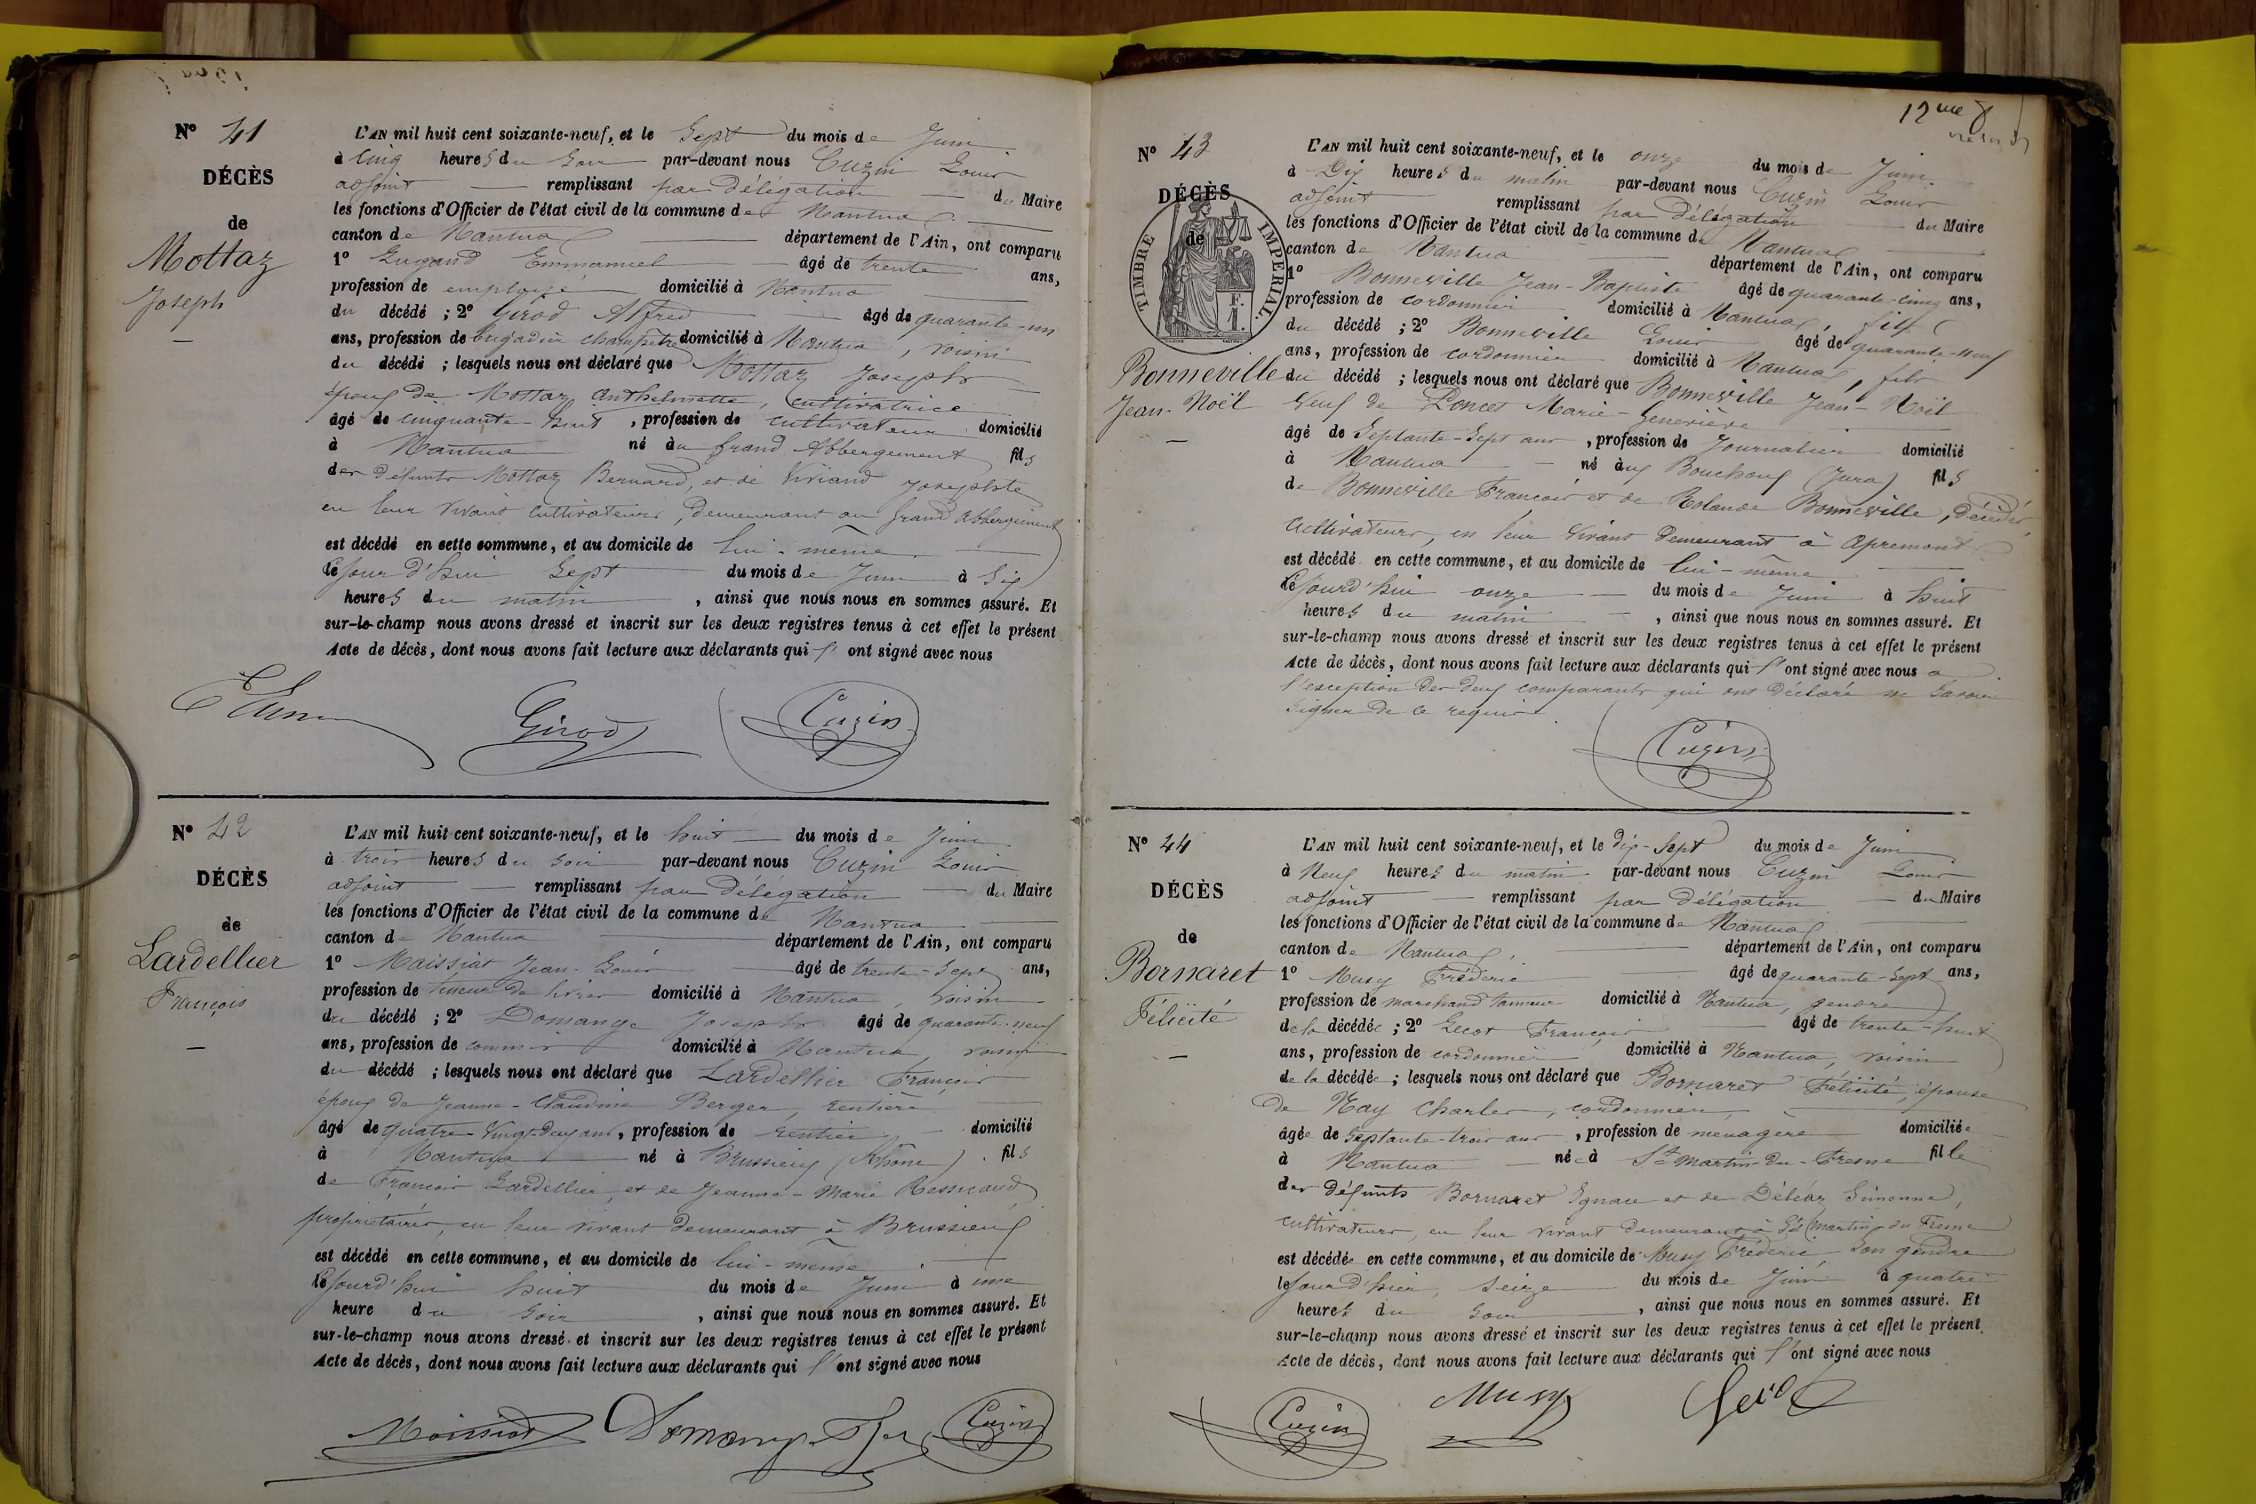 N° 41
DÉCÈS
de
Mottaz
Joseph
L'AN mil huit cent soixante-neuf, et le Sept du mois de Juin
à Cinq heures du Soir par-devant nous Cuzin Louis
adjoint remplissant par délégation du Maire
les fonctions d'Officier de l'état civil de la commune de Nantua
canton de Nantua département de l'Ain, ont comparu
1° Emmanuel âgé de trente ans,
profession de employé domicilié à Nantua
du décédé ; 2° Girod Alfred âgé de quarante-un
ans, profession de brigadier champêtre domicilié à Nantua, voisin
du décédé ; lesquels nous ont déclaré que Mottaz Joseph
époux de Mottaz Anthelmette, Cultivatrice
âgé de cinquante-huit, profession de cultivateur domicilié
à Nantua né au Grand Abbergement fils
des défunts Mottaz Bernard, et de Viviand Josephte
en leur vivant cultivateurs, demeurant au Grand Abbergement
est décédé en cette commune, et au domicile de lui-même
cejourd'hui Sept du mois de Juin à Six
heures du matin, ainsi que nous nous en sommes assuré. Et
sur-le-champ nous avons dressé et inscrit sur les deux registres tenus à cet effet le présent
Acte de décès, dont nous avons fait lecture aux déclarants qui l' ont signé avec nous
Girod Cuzin
N° 42
DÉCÈS
de
Lardellier
François
L'AN mil huit cent soixante-neuf, et le huit du mois de Juin
à trois heures du soir par-devant nous Cuzin Louis
adjoint remplissant par délégation du Maire
les fonctions d'Officier de l'état civil de la commune de Nantua
canton de Nantua département de l'Ain, ont comparu
1° Maissiat Jean-Louis âgé de trente-Sept ans,
profession de teneur de livres domicilié à Nantua, voisin
du décédé ; 2° Domange Joseph âgé de quarante-neuf
ans, profession de commis domicilié à Nantua, voisin
du décédé ; lesquels nous ont déclaré que Lardellier François
époux de Jeanne-Claudine Berger, rentière
âgé de quatre-vingt-deux ans, profession de rentier domicilié
à Nantua né à Brussieux (Rhône). fils
de François Lardellier, et de Jeanne-Marie
propriétaires, en leur vivant demeurant à Brussieux
est décédé en cette commune, et au domicile de lui-même
cejourd'hui huit du mois de Juin à une
heure du Soir, ainsi que nous nous en sommes assuré. Et
sur-le-champ nous avons dressé et inscrit sur les deux registres tenus à cet effet le présent
Acte de décès, dont nous avons fait lecture aux déclarants qui l' ont signé avec nous
Maissiat Domange Cuzin
12me
N° 43
DÉCÈS
de
TIMBRE IMPÉRIAL.
F. 1.
Bonneville
Jean-Noël
L'AN mil huit cent soixante-neuf, et le onze du mois de Juin
à Dix heures du matin par-devant nous Cuzin Louis
adjoint remplissant par délégation du Maire
les fonctions d'Officier de l'état civil de la commune de Nantua
canton de Nantua département de l'Ain, ont comparu
1° Bonneville Jean-Baptiste âgé de quarante-cinq ans,
profession de cordonnier domicilié à Nantua, fils
du décédé ; 2° Bonneville Louis âgé de quarante-neuf
ans, profession de cordonnier domicilié à Nantua, fils
du décédé ; lesquels nous ont déclaré que Bonneville Jean-Noël
Veuf de Poncet Marie-Geneviève
âgé de Septante-Sept ans, profession de Journalier domicilié
à Nantua né aux Bouchoux (Jura) fils
de Bonneville François et de Rolande Bonneville, décédés
Cultivateurs, en leur vivant demeurant à Apremont
est décédé en cette commune, et au domicile de lui-même
cejourd'hui onze du mois de Juin à huit
heures du matin, ainsi que nous nous en sommes assuré. Et
sur-le-champ nous avons dressé et inscrit sur les deux registres tenus à cet effet le présent
Acte de décès, dont nous avons fait lecture aux déclarants qui l' ont signé avec nous à
l'exception des deux comparants qui ont déclaré ne savoir
signer de ce requis
Cuzin
N° 44
DÉCÈS
de
Bornaret
Félicité
L'AN mil huit cent soixante-neuf, et le dix-Sept du mois de Juin
à Neuf heures du matin par-devant nous Cuzin Louis
adjoint remplissant par délégation du Maire
les fonctions d'Officier de l'état civil de la commune de Nantua
canton de Nantua département de l'Ain, ont comparu
1° Musy Frédéric âgé de quarante-Sept ans,
profession de marchand tanneur domicilié à Nantua, gendre
de la décédée ; 2° François âgé de trente-huit
ans, profession de cordonnier domicilié à Nantua, voisin
de la décédée ; lesquels nous ont déclaré que Bornaret Félicité, épouse
De Nay Charles, cordonnier,
âgée de Septante-trois ans, profession de ménagère domiciliée
à Nantua née à St Martin-du-Fresne fille
des défunts Bornaret Ignace et de
cultivateurs, en leur vivant demeurant à St Martin du Fresne
est décédée en cette commune, et au domicile de Musy Frédéric son gendre
le jour d'hier, Seize du mois de Juin à quatre
heures du Soir, ainsi que nous nous en sommes assuré. Et
sur-le-champ nous avons dressé et inscrit sur les deux registres tenus à cet effet le présent
Acte de décès, dont nous avons fait lecture aux déclarants qui l' ont signé avec nous
Cuzin Musy